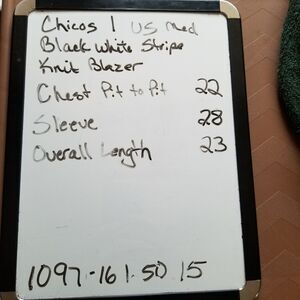 Chicos 1 US Med
Black White Stripe
Knit Blazer
Chest Pit to Pit 22
Sleeve 28
Overall Length 23
1097-161.50 15